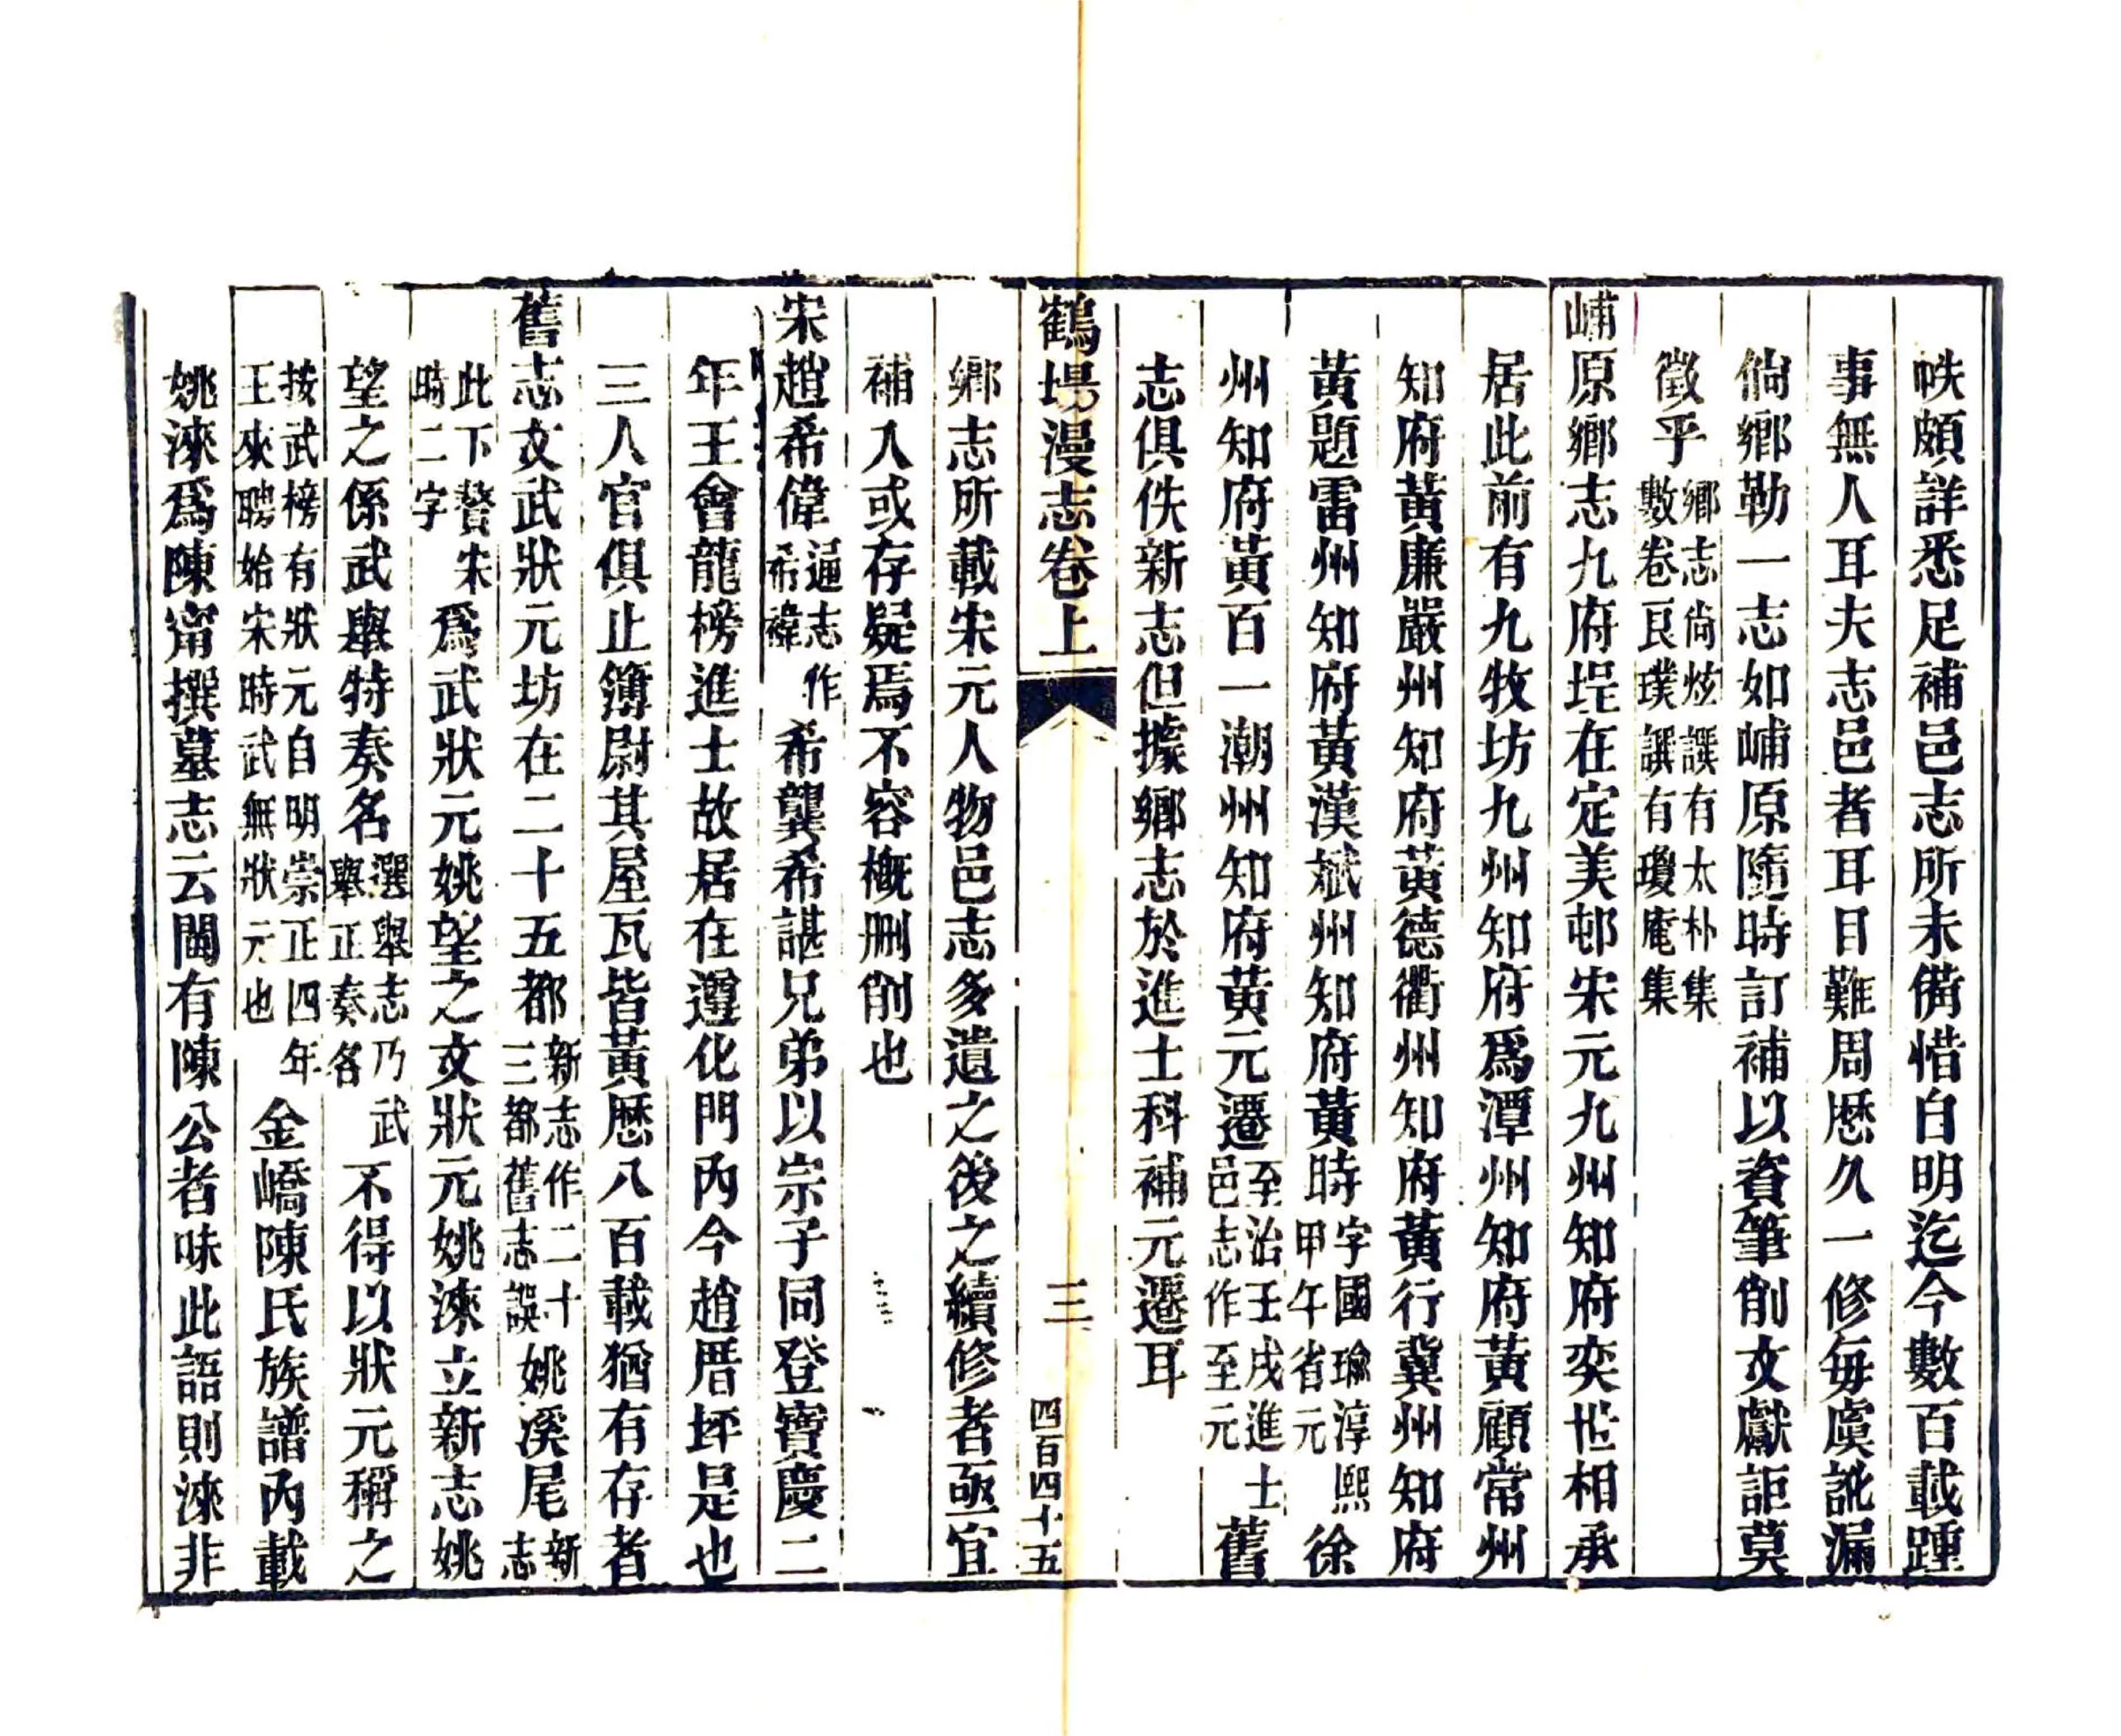 帙頗詳悉足補邑志所未備惜自明迄今數百載踵
事無人耳夫志邑者耳目難周歷久一修每虞訛漏
倘鄉勒一志如峬原隨時訂補以資筆削文獻詎莫
徵乎鄉志尙炫譔有太朴集
數卷良璞譔有瓊庵集
峬原鄉志九府埕在定美邨宋元九州知府奕世相承
居此前有九牧坊九州知府爲潭州知府黃顧常州
知府黃廉嚴州知府黃德衢州知府黃行冀州知府
黃題雷州知府黃漢斌州知府黃時字國瑜淳熙
甲午省元徐
州知府黃百一潮州知府黃元遷至治壬戌進士
邑志作至元舊
志俱佚新志但據鄉志於進士科補元遷耳
鶴場漫志卷上
三
四百四十五
鄉志所載宋元人物邑志多遺之後之續修者亟宜
補入或存疑焉不容概刪削也
宋趙希偉通志作
希褘希龔希諶兄弟以宗子同登寶慶二
年王會龍榜進士故居在遵化門內今趙厝坪是也
三人官俱止簿尉其屋瓦皆黃歷八百載猶有存者
舊志文武狀元坊在二十五都新志作二十
三都舊志誤姚溪尾新
志
此下贅宋
時二字爲武狀元姚望之文狀元姚淶立新志姚
望之係武舉特奏名選舉志乃武
舉正奏名不得以狀元稱之
按武榜有狀元自明崇正四年
王來聘始宋時武無狀元也金嶠陳氏族譜內載
姚淶爲陳甯撰墓志云閩有陳公者味此語則淶非